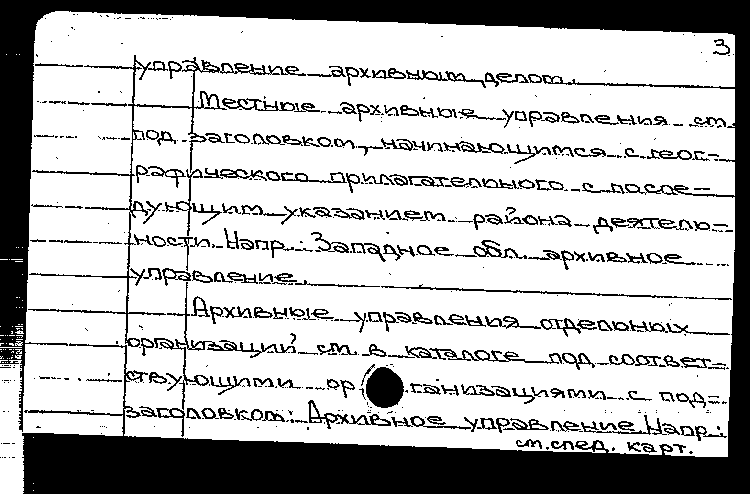 3
управление архивным делом.
Местные архивные управления см.
под заголовком, начинающимся с геог-
рафического прилагательного с после-
дующим указанием района деятель-
ности. Напр.: Западное обл. архивное
управление.
Архивные управления отдельных
организаций см. в каталоге под соответ-
ствующими организациями с под-
заголовком: Архивное управление. Напр.:
см. след. карт.